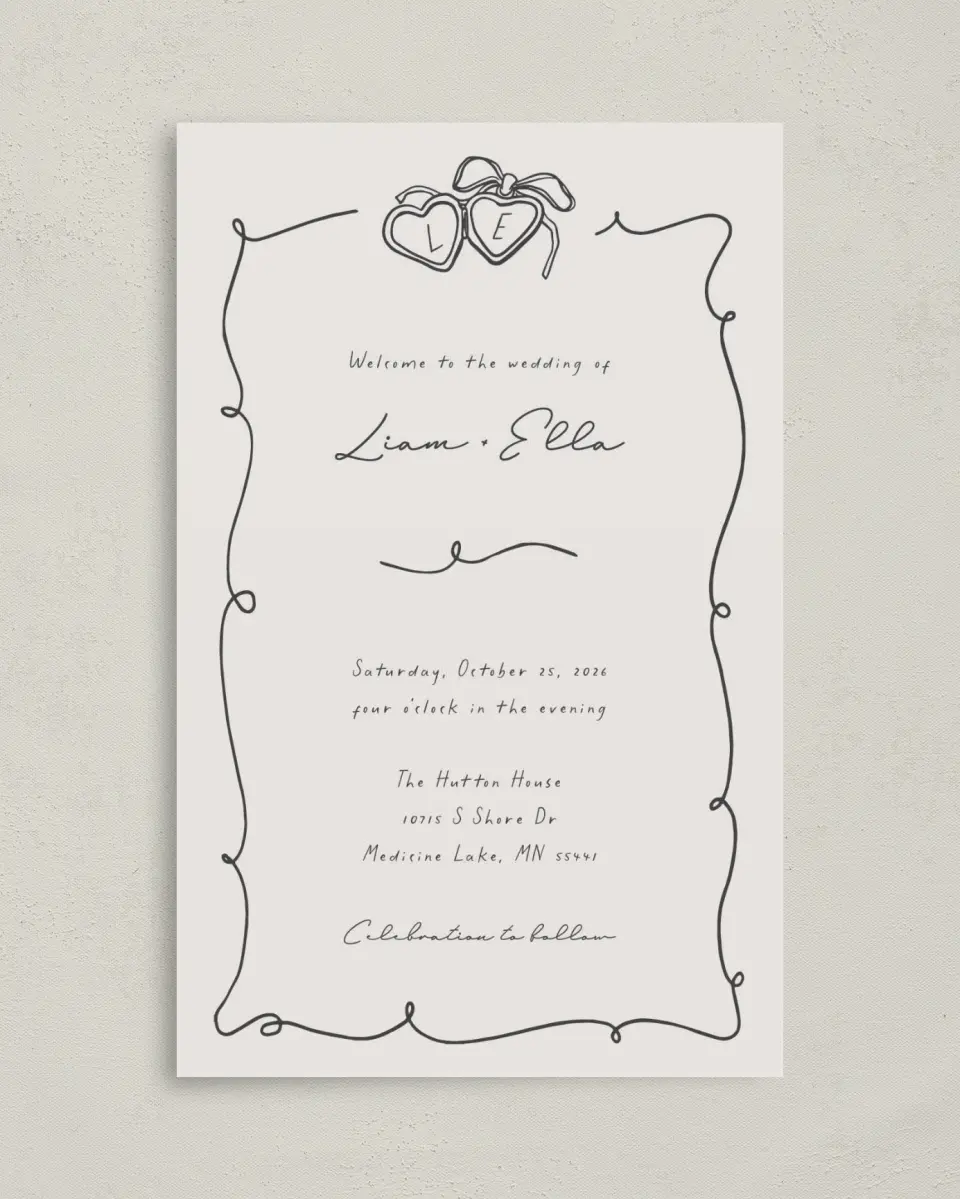 L E
Welcome to the wedding of
Liam + Ella
Saturday, October 25, 2026
four o'clock in the evening
The Hutton House
10715 S Shore Dr
Medicine Lake, MN 55441
Celebration to follow